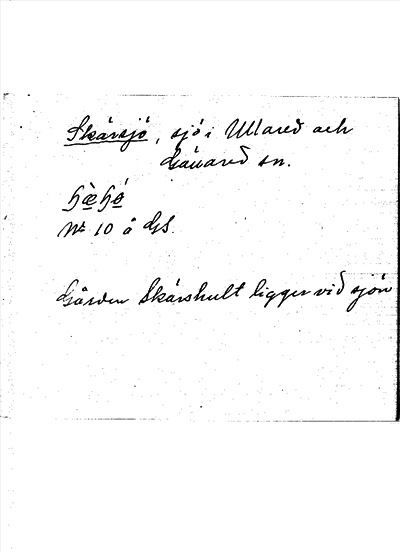 Skärsjö, sjö i Ullared och
Gällared sn.
№ 10 å GS.
Gården Skärshult ligger vid sjön